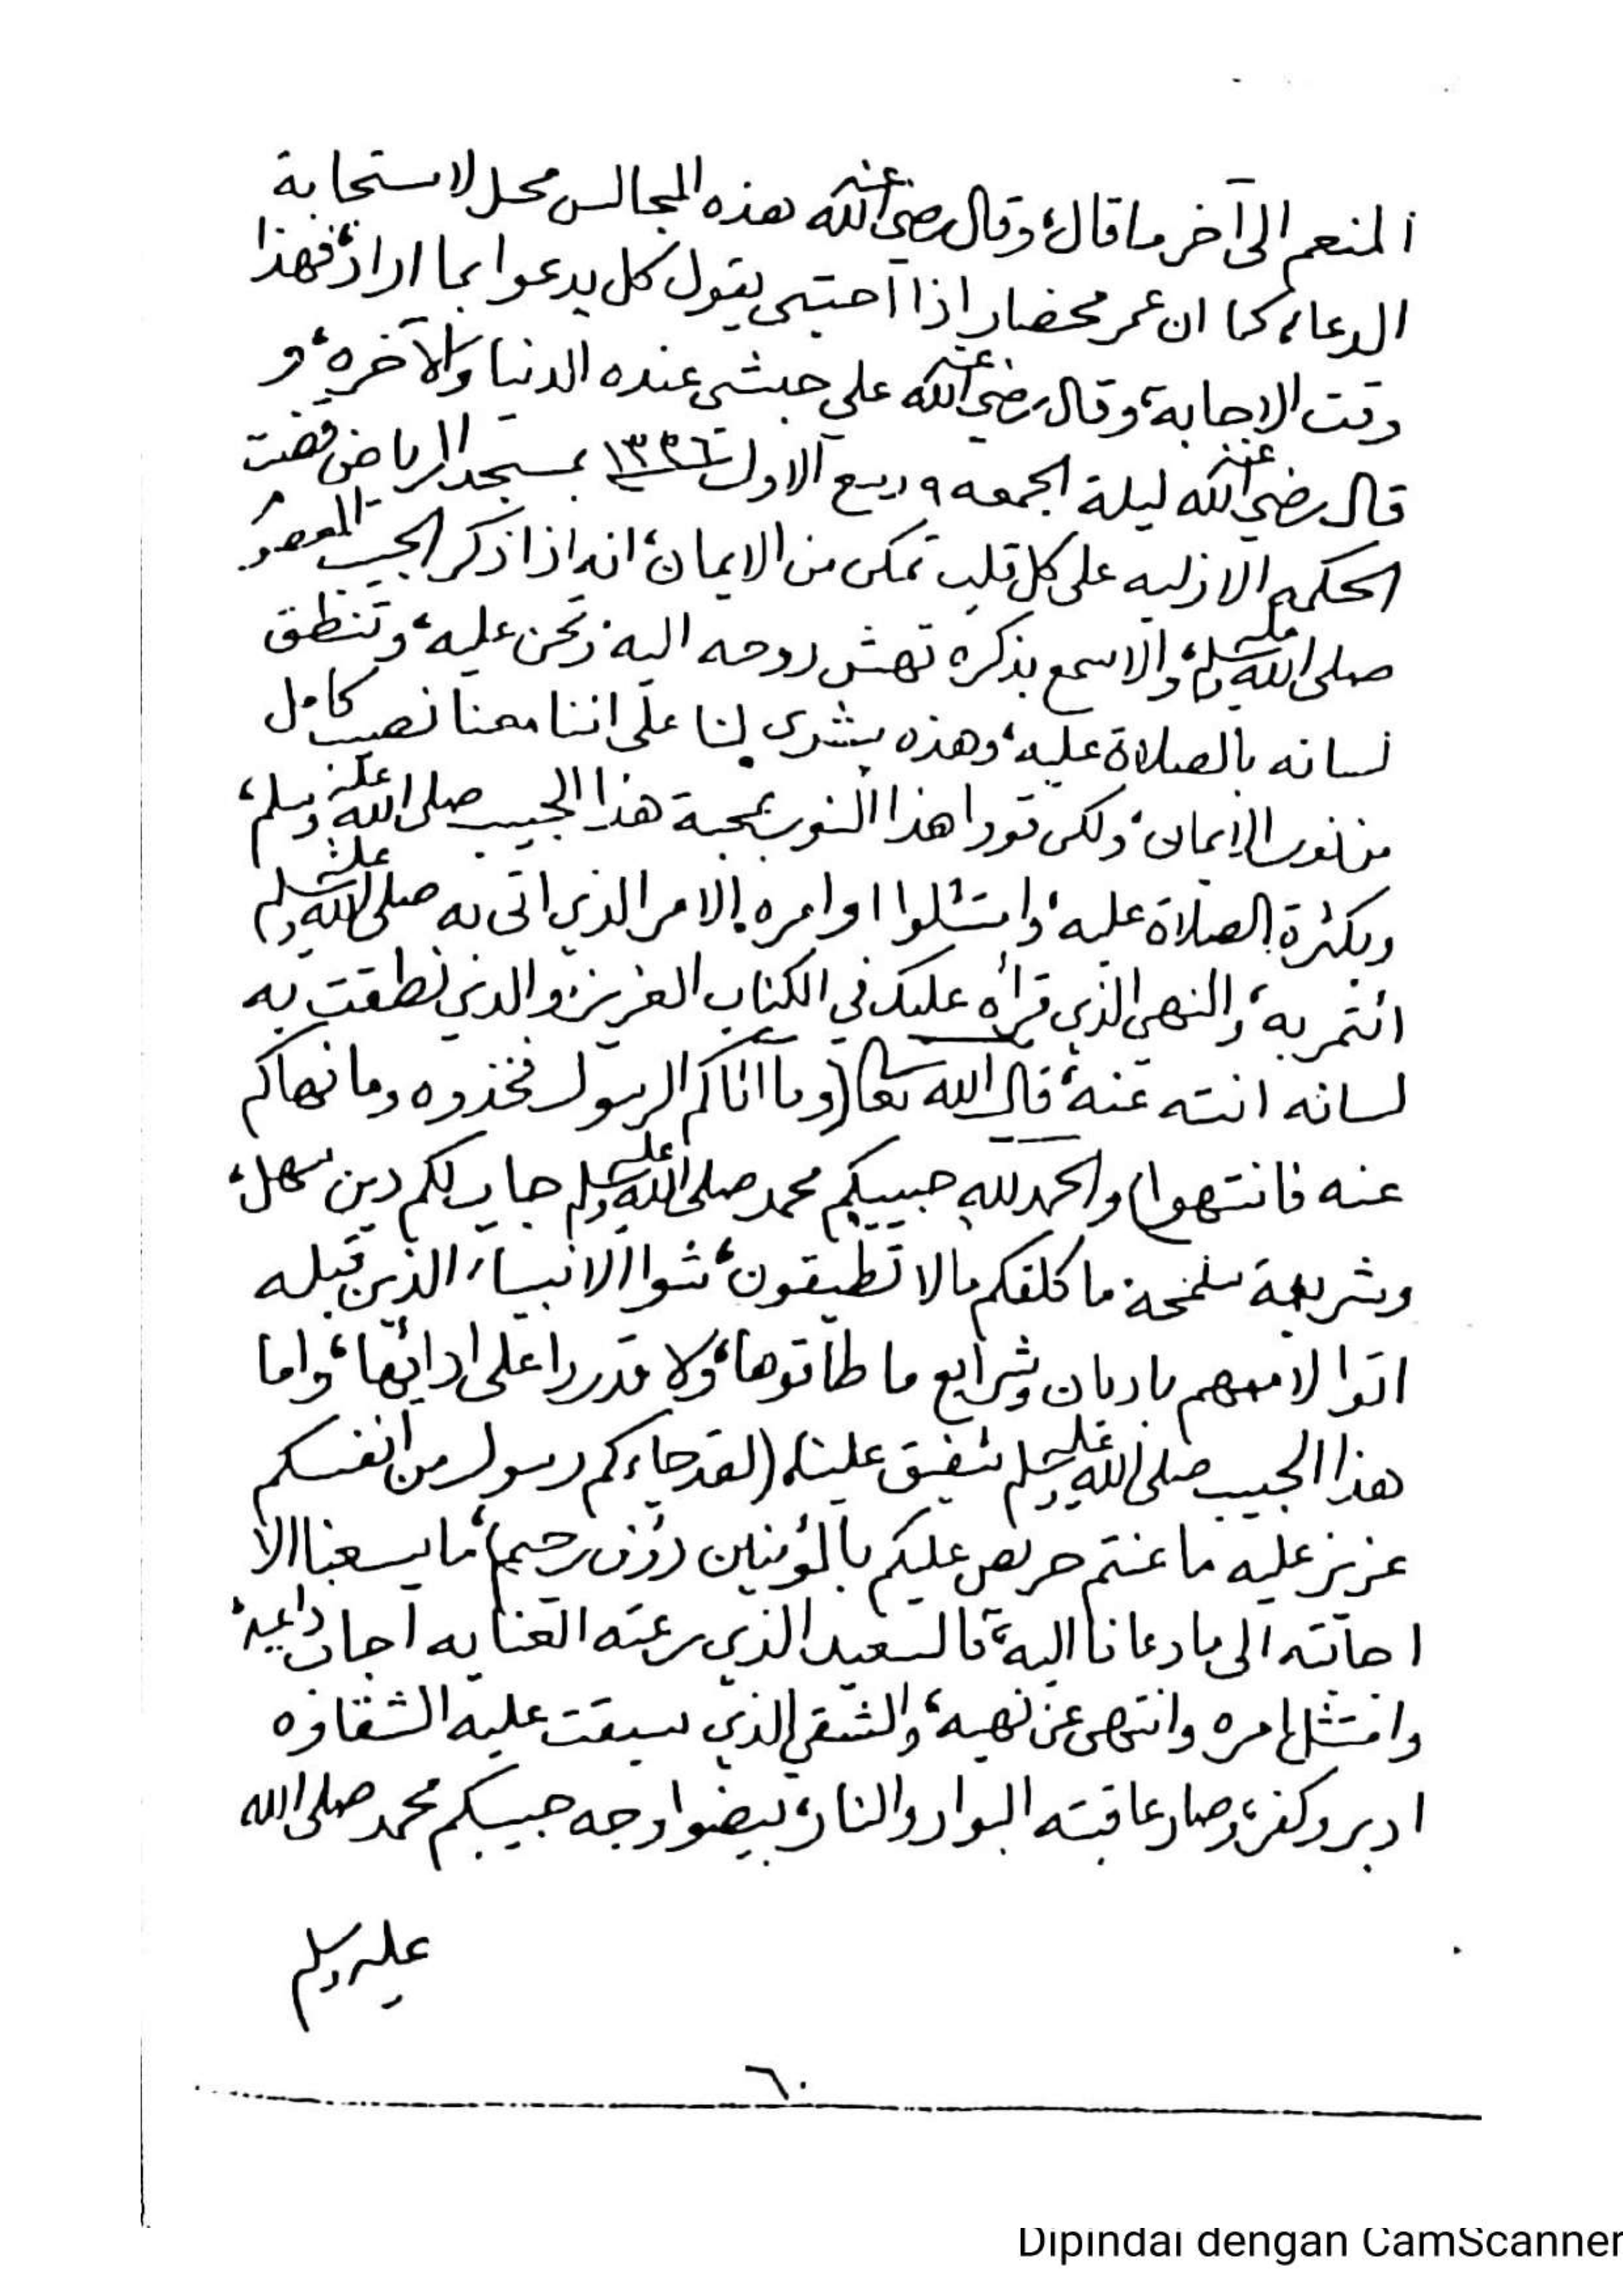 المنعم الى آخر ما قال، وقال رضي الله عنه هذه المجالس محل لاستجابة
الدعاء، كما ان عمر محضار اذا احتبى يقول كل يدعوا بما اراد، فهذا
وقت الاجابة، وقال رضي الله عنه علي حبشي عنده الدنيا والآخره، و
قال رضي الله عنه ليلة الجمعه ٩ ربيع الاول ١٣٢٦ بمسجد الرياض قضت
الحكمه الازليه على كل قلب تمكن من الايمان، انه اذا ذكر الحبيب
صلى الله عليه وسلم، والا سمع بذكره تهش روحه اليه وتحن عليه، وتنطق
لسانه بالصلاة عليه، وهذه بشرى لنا على اننا معنا نصيب كامل
من نور الايمان، ولكن قووا هذا النور بمحبة هذا الحبيب صلى الله عليه وسلم،
وبكثرة الصلاة عليه، وامتثلوا اوامره الامر الذي اتى به صلى الله عليه وسلم
ائتمر به، والنهي الذي قرأه عليك في الكتاب العزيز، والذي نطقت به
لسانه انته عنه، قال الله تعالى (وما اتاكم الرسول فخذوه وما نهاكم
عنه فانتهوا) والحمد لله حبيبكم محمد صلى الله عليه وسلم جاب لكم دين سهل،
وشريعة سمحة ما كلفكم مالا تطيقون، شوا الانبياء الذين قبله
اتوا لاممهم باديان وشرايع ما طاقوها، ولا قدروا على ادائها، واما
هذا الحبيب صلى الله عليه وسلم شفيق علينا، (لقد جاءكم رسول من انفسكم
عزيز عليه ما عنتم حريص عليكم بالمؤمنين رؤف رحيم)، ما يسعنا الا
اجابته الى ما دعانا اليه، فالسعيد الذي رعته العنايه اجاب داعيه،
وامتثل امره وانتهى عن نهيه، والشقي الذي سبقت عليه الشقاوه
ادبر وكفر، وصار عاقبته البوار والنار، بيضوا وجه حبيبكم محمد صلى الله
عليه وسلم
٦٠
Dipindai dengan CamScanner